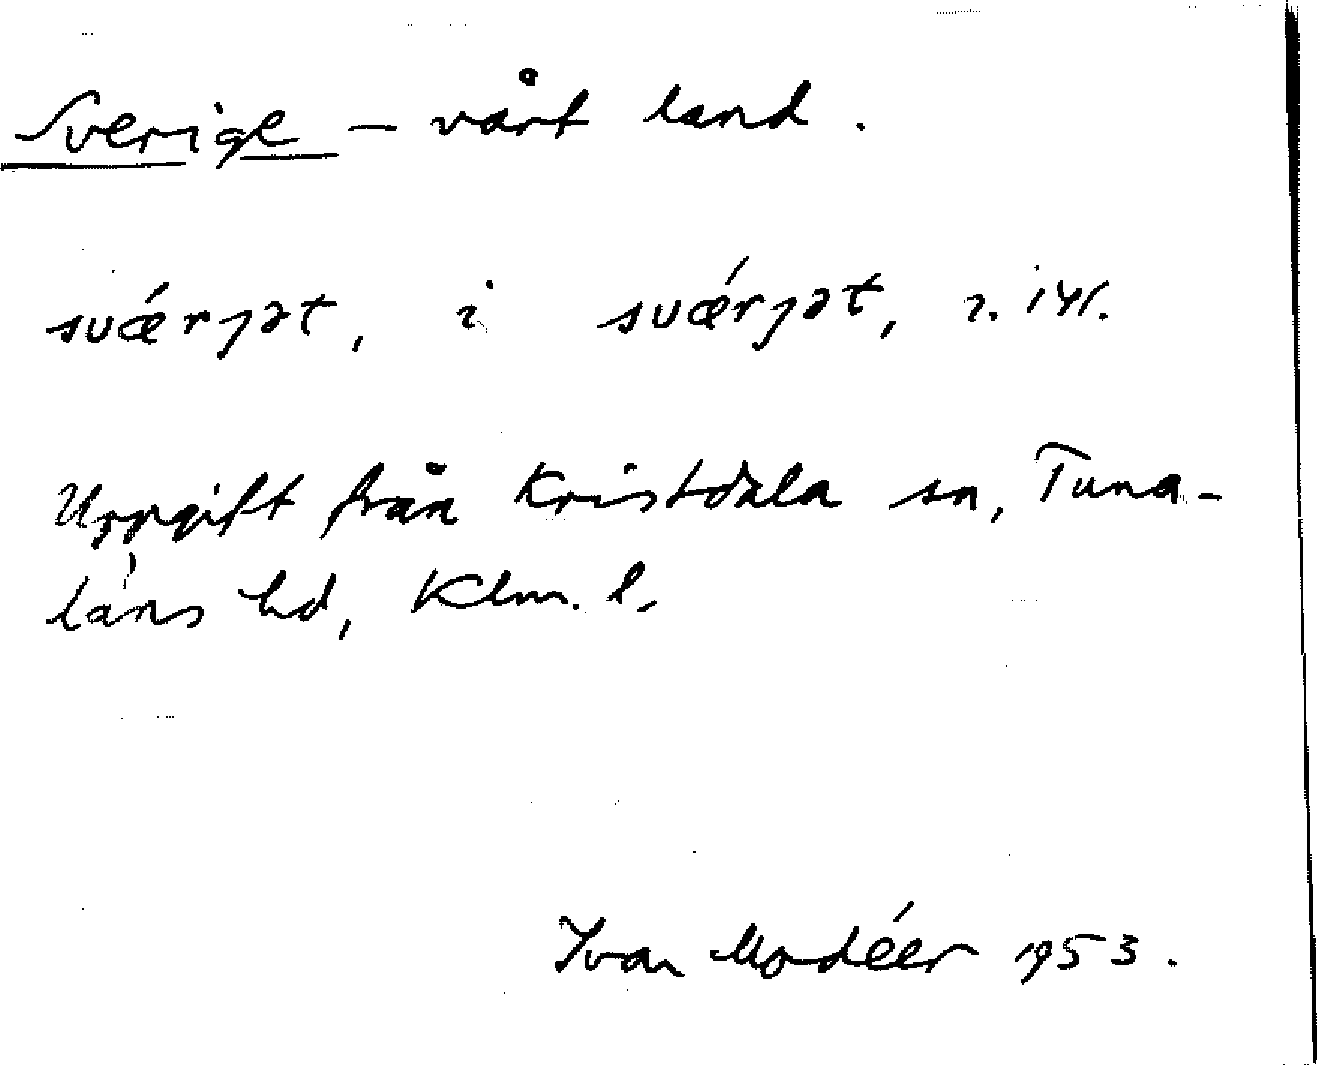 Sverige – vårt land.
svǽrjət, i svǽrjət,
Uppgift från Kristdala sn, Tuna-
läns hd, Klm. l.
Ivar Modéer 1953.